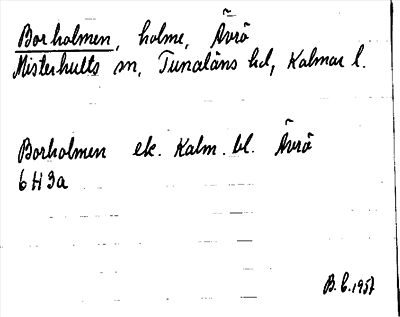 Borholmen, holme, Ävrö
Misterhults sn, Tunaläns hd, Kalmar l.
Borholmen ek. Kalm. bl. Ävrö
6H3a
B.L.1957